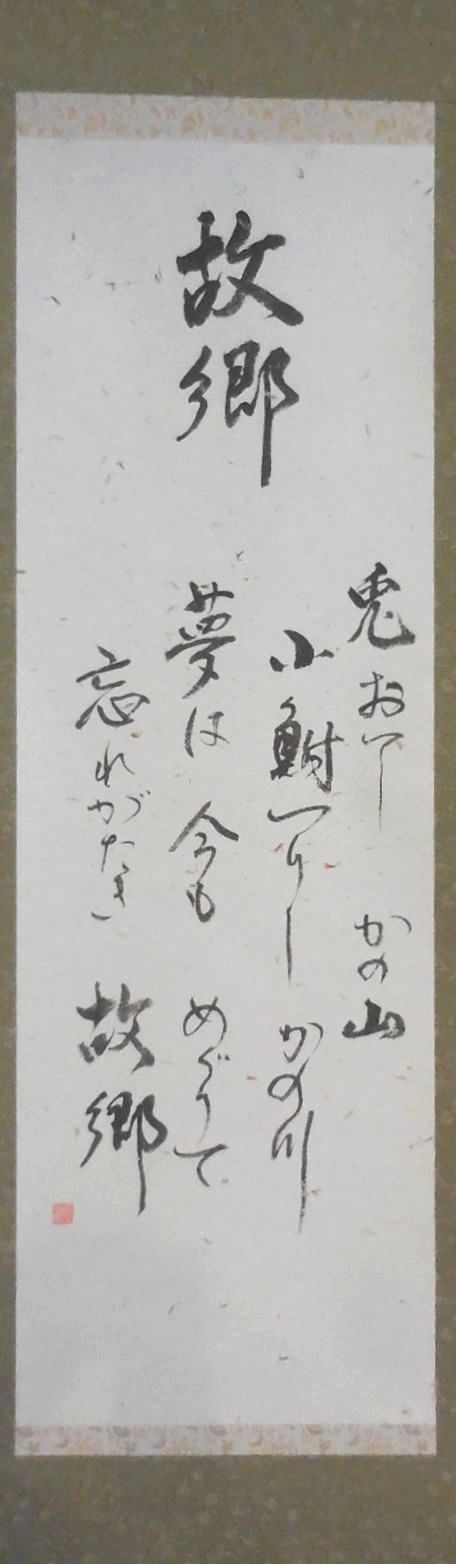 故郷
兎おいし かの山
小鮒つりし かの川
夢は 今も めぐりて
忘れがたき 故郷